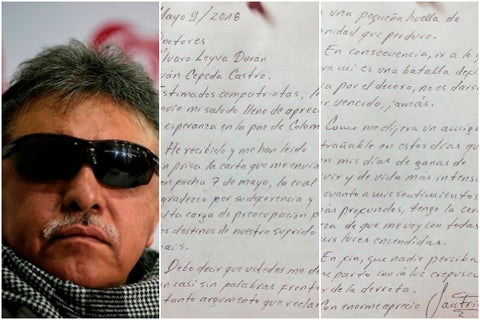 Mayo 9/2018
octores
lvaro Leyva Durán
ván Cepeda Castro.
stimados compatriotas, le
nvío mi saludo lleno de aprec
esperanza en la paz de Colom
He recibido y me han leído
n prisa la carta que me envia
on fecha 7 de mayo, la cual
gradezco por su deferencia y
lta carga de preocupación p
os destinos de nuestro sufrido
aís.
Debo decir que ustedes me de
on casi sin palabras frente
tanto argumento que recla
a una pequeña huella de
nidad que perdure.
En consecuencia, ir a lo
ra mí es una batalla dec
a por el decoro, no es darse
r vencido, jamás.
Como me dijera un amigo
trañable en estos días qu
on mis días de ganas de
vir y de vida más intens
cuanto a mis sentimientos
ás profundos, tengo la cer
za de que me voy con todas
is luces encendidas.
En fin, que nadie perciba
e parto con la luz crepusc
de la derrota.
Con enorme aprecio